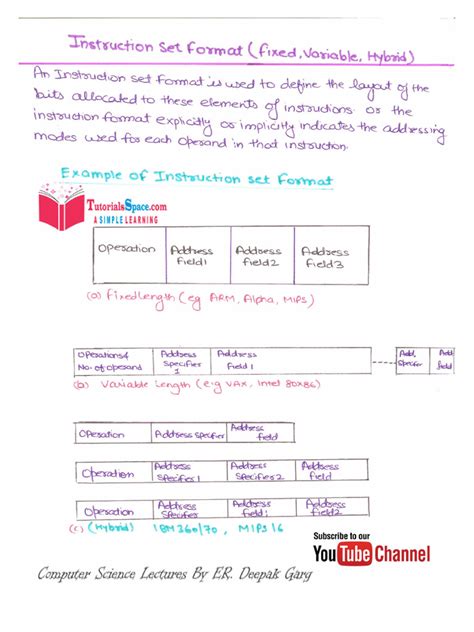 Instruction Set Format (Fixed, Variable, Hybrid)
An Instruction set Format is used to define the layout of the
bits allocated to these elements of instructions. or the
instruction format explicitly or implicitly indicates the addressing
modes used for each operand in that instruction.
Example of Instruction set Format
TutorialsSpace.com
A SIMPLE LEARNING
Operation Address Field1 Address Field2 Address Field3
(a) Fixed Length (eg ARM, Alpha, MIPS)
Operations & No. of operand Address Specifier 1 Address Field 1 Add. Specifier Add. field
(b) Variable Length (e.g VAX, Intel 80x86)
Operation Address Specifier Address field
Operation Address Specifier 1 Address Specifier 2 Address Field
Operation Address Specifier Address Field 1 Address Field 2
(c) (Hybrid) IBM 360/70, MIPS 16
Subscribe to our
YouTube Channel
Computer Science Lectures By ER. Deepak Garg